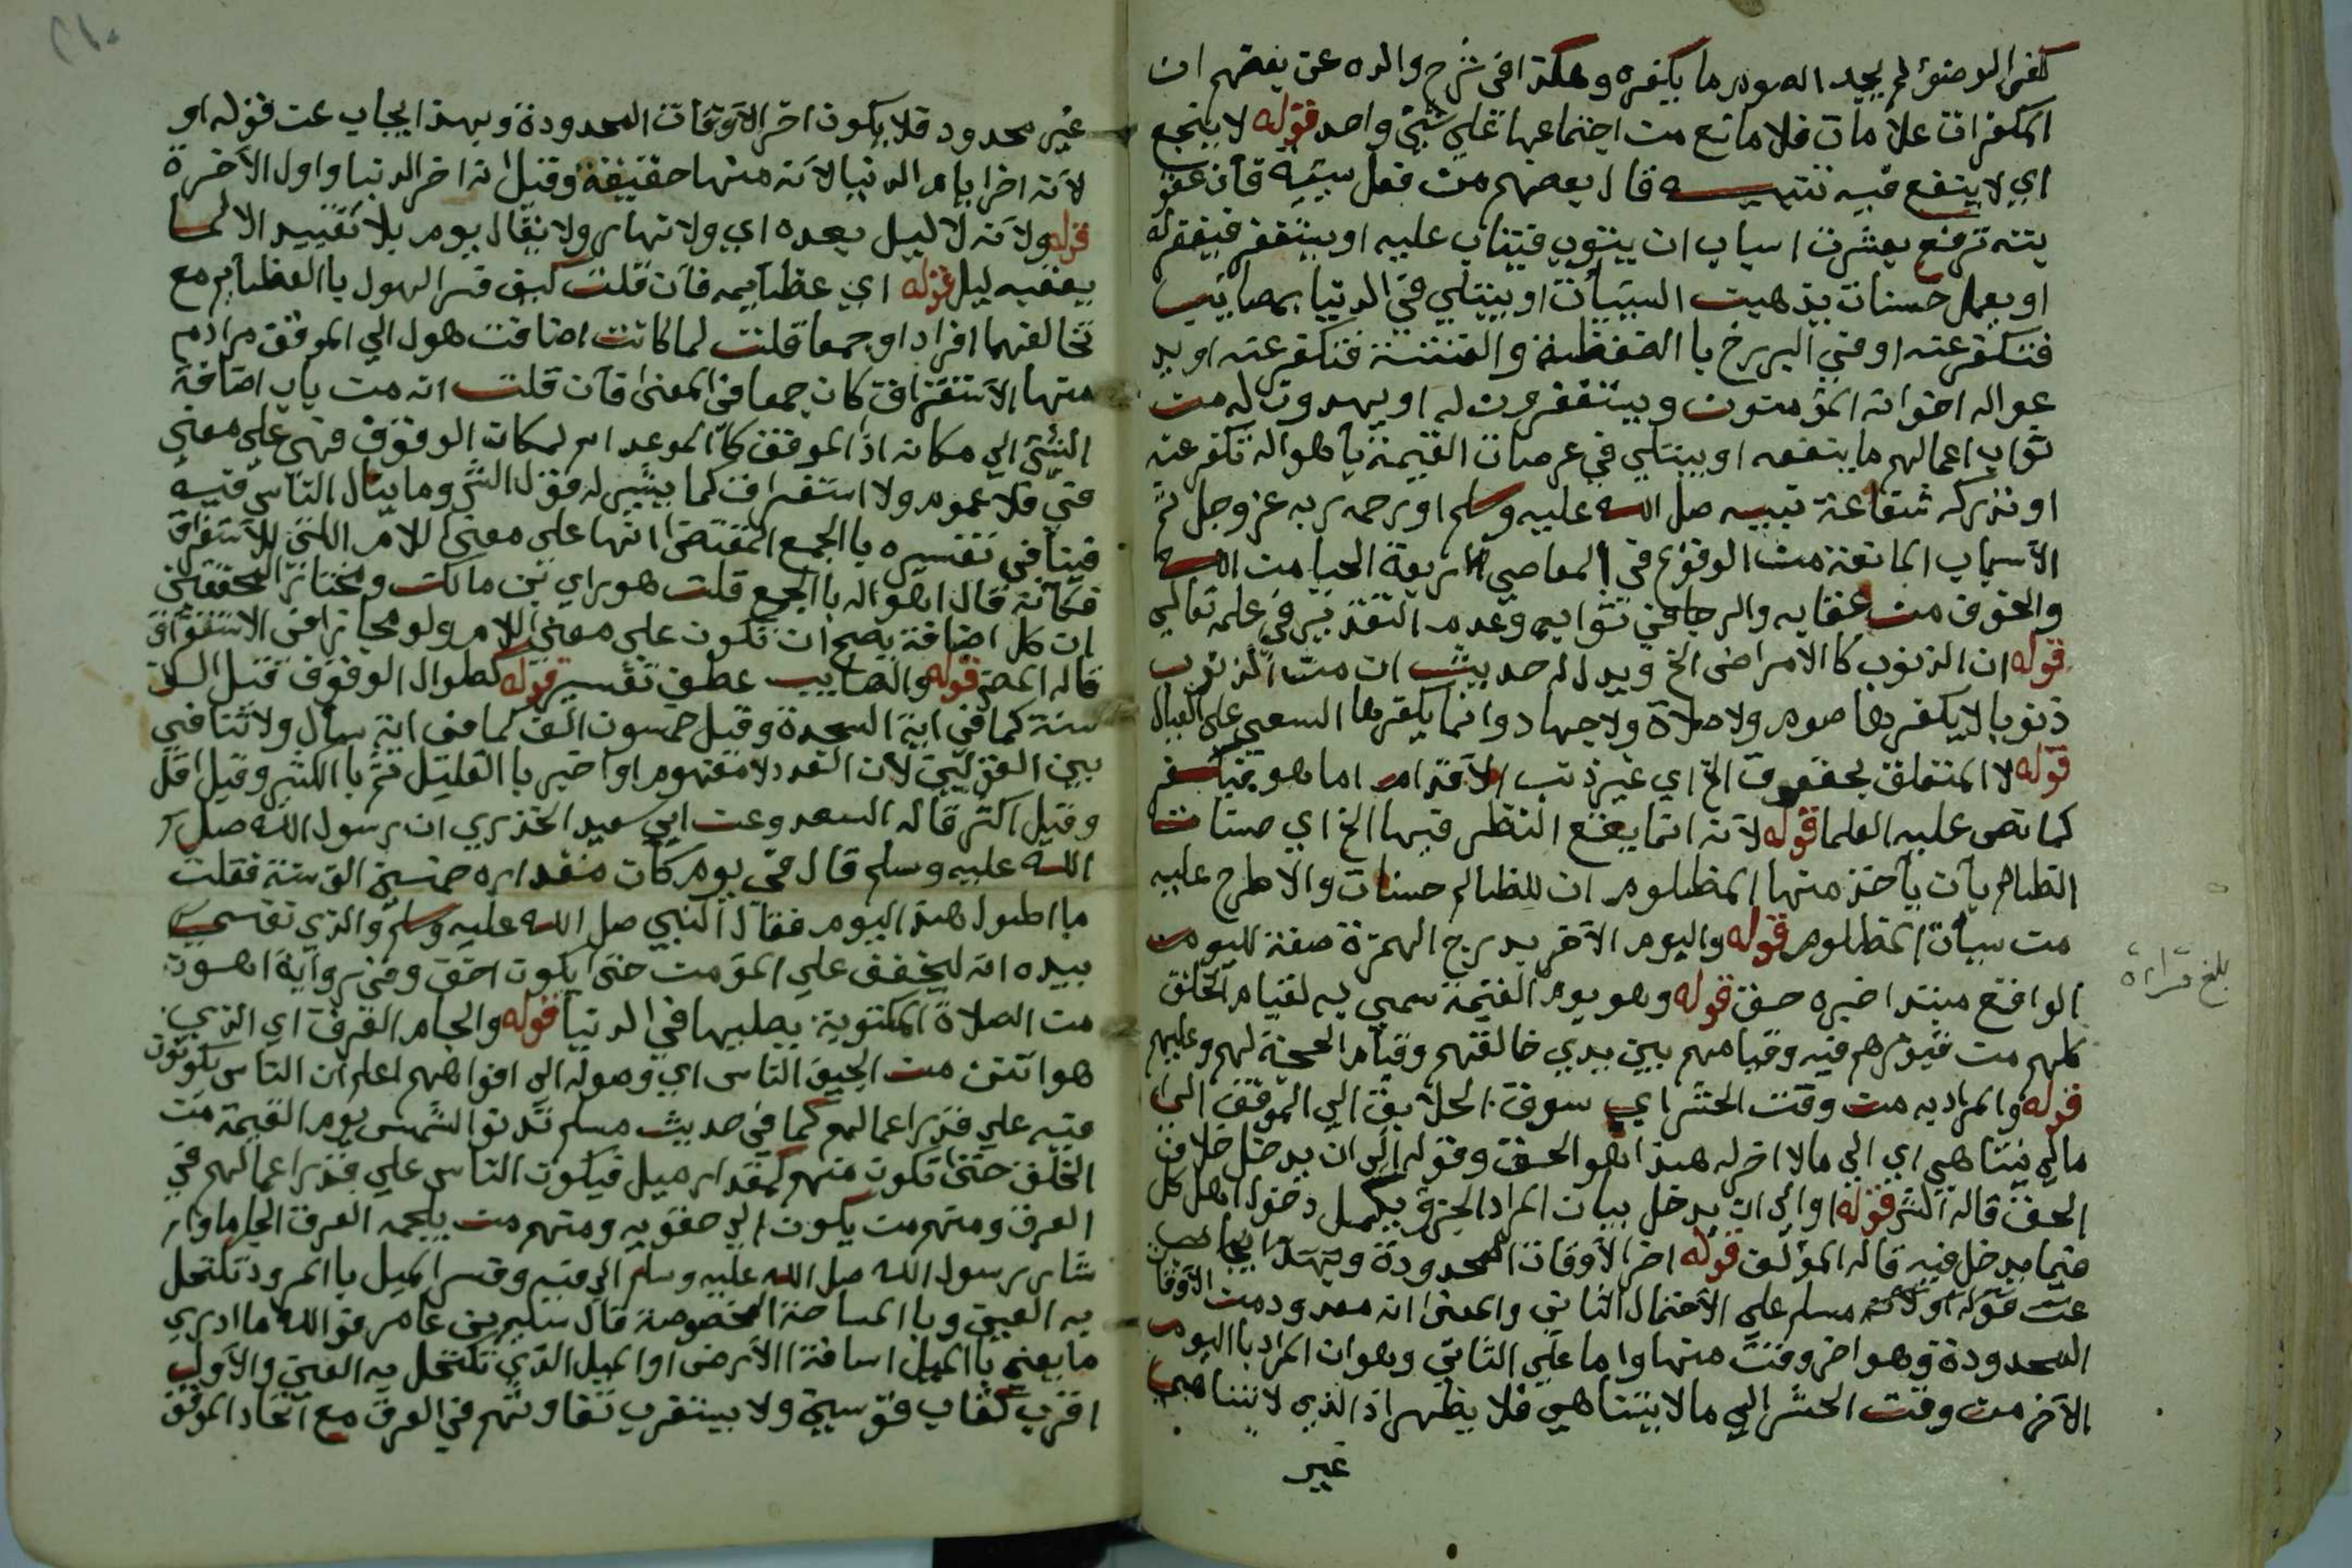 كفر الوضوء لم يجد الصوم ما يكفره وهكذا في شرح والده عن بعضهم ان
المكفرات علامات فلا مانع من اجتماعها علي شيء واحد قوله لا ينجع
اي لا ينفع فيه تنبيه قال بعضهم من فعل سيئة فان عقو
بته ترفع بعشرة اسباب ان يتوب فيتاب عليه او يستغفر فيغفر له
او يعمل حسنات يذهبن السيئات او يبتلي في الدنيا بمصائب
فتكفر عنه او في البرزخ بالضغطة والفتنة فتكفر عنه او يد
عوا له اخوانه المؤمنون ويستغفرون له او يهدون له من
ثواب اعمالهم ما ينفعه او يبتلي في عرصات القيمة باهواله تكفر عنه
او تدركه شفاعة نبيه صل الله عليه وسلم او يرحمه ربه عز وجل ثم
الاسباب المانعة من الوقوع في المعاصي اربعة الحيا من الله
والخوف من عقابه والرجا في ثوابه وعدم التقدير في علمه تعالي
قوله ان الذنوب كالامراض الخ ويدل له حديث ان من الذنوب
ذنوبا لا يكفرها صوم ولا صلاة ولا جهاد وانما يكفرها السعي علي العيال
قوله لا المتعلق بحقوق الخ اي غير ذنب الآدم اما هو فيكفر
كما نص عليه العلما قوله لانه انما يقع النظر فيها الخ اي حسنات
الظالم بان ياخذ منها المظلوم ان للظالم حسنات والا طرح عليه
من سيأت المظلوم قوله واليوم الآخر بدرج الهمزة صفة لليوم
الواقع مبتدا خبره حق قوله وهو يوم القيمة سمي به لقيام الخلق
كلهم من قبورهم فيه وقيامهم بين يدي خالقهم وقيام الحجة لهم وعليهم
قوله والمراد به من وقت الحشر اي سوق الخلائق الي الموقف الي
مالا يتناهي اي الي مالا اخر له هذا هو الحق وقوله الي ان يدخل خلاف
الحق قاله الش قوله او الي ان يدخل بيان المراد الجزئ بيكمل دخول اهل كل
فيما يدخل فيه قاله المؤلف قوله اخر الاوقات المحدودة
عن قوله او لانه مسلم علي الاحتمال الثاني والمعني انه معدود من الاوقات
المحدودة وهو اخر وقت منها واما علي الثاني وهو ان المراد باليوم
الآخر من وقت الحشر الي مالا يتناهي فلا يظهر اذ الذي لا يتناهي
غير
بلغ قراءة
غير محدود فلا يكون اخر الاوقات المحدودة وبهذا يجاب عن قوله او
لانه اخر ايام الدنيا لانه منها حقيقة وقيل انه اخر الدنيا واول الآخرة
قوله ولانه لا ليل بعده اي ولا نهار ولا يقال يوم بلا تقييد الا لما
يعقبه ليل قوله اي عظايمه فان قلت كيف فسر الهول بالعظايم مع
تخالفهما افرادا وجمعا قلت لما كانت اضافت هول الي الموقف مرادم
منها الاستغراق كان جمعا في المعني فان قلت انه من باب اضافة
الشئ الي مكانه اذ الموقف كالموعد اسم لمكان الوقوف فهي علي معني
في فلا عموم ولا استغراق كما يشير له قول الش وما ينال الناس فيه
فينافي تفسيره بالجمع المقتضي انها علي معني اللام التي للاستغراق
فكأنه قال اهواله بالجمع قلت هو راي بن مالك ومختار المحققين
ان كل اضافة يصح ان تكون علي معني اللام ولو مجازا في الاستغراق
قاله المص قوله والمصايب عطف تفسير قوله كطوال الوقوف قيل الف
سنة كما في اية السجدة وقيل خمسون الف كما في اية سأل ولا تنافي
بين القولين لان العدد لا مفهوم او اخبر بالقليل ثم بالكثير وقيل اقل
وقيل اكثر قاله السعد وعن ابي سعيد الخدري ان رسول الله صل
الله عليه وسلم قال في يوم كان مقداره خمسين الف سنة فقلت
ما اطول هذا اليوم فقال النبي صل الله عليه وسلم والذي نفسي
بيده انه ليخفف علي المؤمن حتي يكون اخف وفي رواية اهون
من الصلاة المكتوبة يصليها في الدنيا قوله والجام العرق اي الذي
هو انتن من الجيف الناس اي وصوله الي افواههم اعلم ان الناس يكونون
فيه علي قدر اعمالهم كما في حديث مسلم تدنو الشمس يوم القيمة من
الخلق حتي تكون منهم كمقدار ميل فيكون الناس علي قدر اعمالهم في
العرق ومنهم من يكون الي حقويه ومنهم من يلجمه العرق الجاما واشار
رسول الله صل الله عليه وسلم الي فيه وفسر الميل بالمرود تكتحل
به العين وبالمساحة المخصوصة قال سليم بن عامر فوالله ما ادري
ما يعني بالميل اسافة الارض او الميل الذي تكتحل به العين والاول
اقرب كقاب قوسين ولا يستقرب تفاوتهم في العرق مع اتحاد الموقف